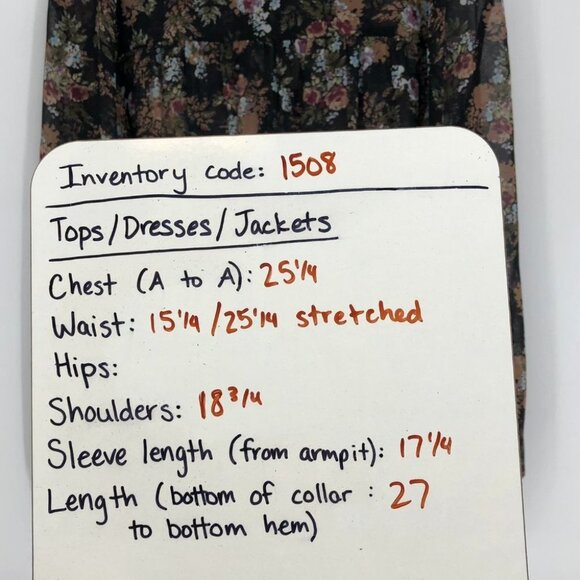 Inventory code: 1508
Tops/Dresses/Jackets
Chest (A to A): 25 1/4
Waist: 15 1/4 / 25 1/4 stretched
Hips:
Shoulders: 18 3/4
Sleeve length (from armpit): 17 1/4
Length (bottom of collar : 27
to bottom hem)